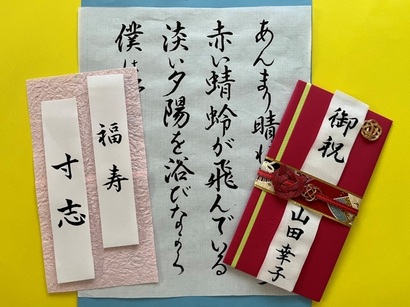 御祝
山田幸子
あんまり晴れ
赤い蜻蛉が飛んでいる
淡い夕陽を浴びながら
僕は
福寿
寸志